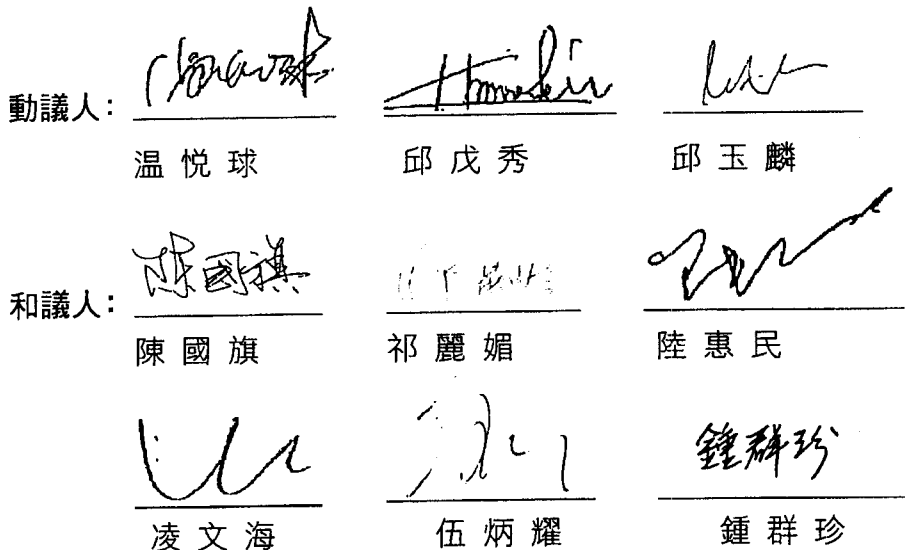 動議人：
温悦球 邱戊秀 邱玉麟
陳國旗
和議人：
陳國旗 祁麗媚 陸惠民
鍾群珍
凌文海 伍炳耀 鍾群珍